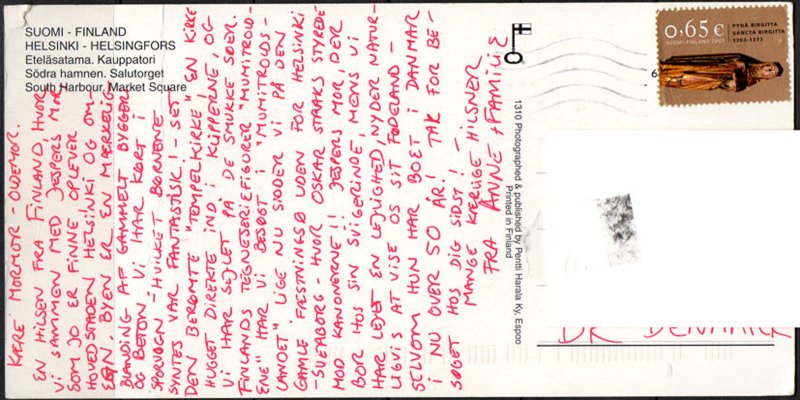 SUOMI - FINLAND
HELSINKI - HELSINGFORS
Eteläsatama. Kauppatori
Södra hamnen. Salutorget
South Harbour. Market Square
KÆRE MORMOR - OLDEMOR.
EN HILSEN FRA FINLAND, HVOR
VI SAMMEN MED JESPERS MOR
SOM JO ER FINNE OPLEVER
HOVEDSTADEN HELSINKI OG OM-
EGN, BYEN ER EN MÆRKELIG
BLANDING AF GAMMELT BYGGERI
OG BETON VI HAR KØRT I
SPORVOGN - HVILKET BØRNENE
SYNTES VAR FANTASTISK! - SET
DEN BERØMTE "TEMPELKIRKE" EN KIRKE
HUGGET DIREKTE IND I KLIPPERNE, OG
VI HAR SEJLET PÅ DE SMUKKE SØER.
FINLANDS TEGNESERIEFIGURER "MUMITROLD-
ENE" HAR VI BESØGT I "MUMITROLDS-
LANDET" LIGE NU SIDDER VI PÅ DEN
GAMLE FÆSTNINGSØ UDEN FOR HELSINKI
- SVEABORG - HVOR OSKAR STRAKS STYREDE
MOD KANONERNE!! JESPERS MOR, DER
BOR HOS SIN SVIGERINDE, MENS VI
HAR LEJET EN LEJLIGHED, NYDER NATUR-
LIGVIS AT VISE OS SIT FØDELAND -
SELVOM HUN HAR BOET I DANMARK
I NU OVER 50 ÅR! TAK FOR BE-
SØGET HOS DIG SIDST!
MANGE KÆRLIGE HILSNER
FRA ANNE + FAMILIE
1310 Photographed & published by Pentti Harala Ky, Espoo
Printed in Finland
0,65 €
SUOMI FINLAND 2003
PYHÄ BIRGITTA
SANCTA BIRGITTA
1303-1373
6
DK DENMARK